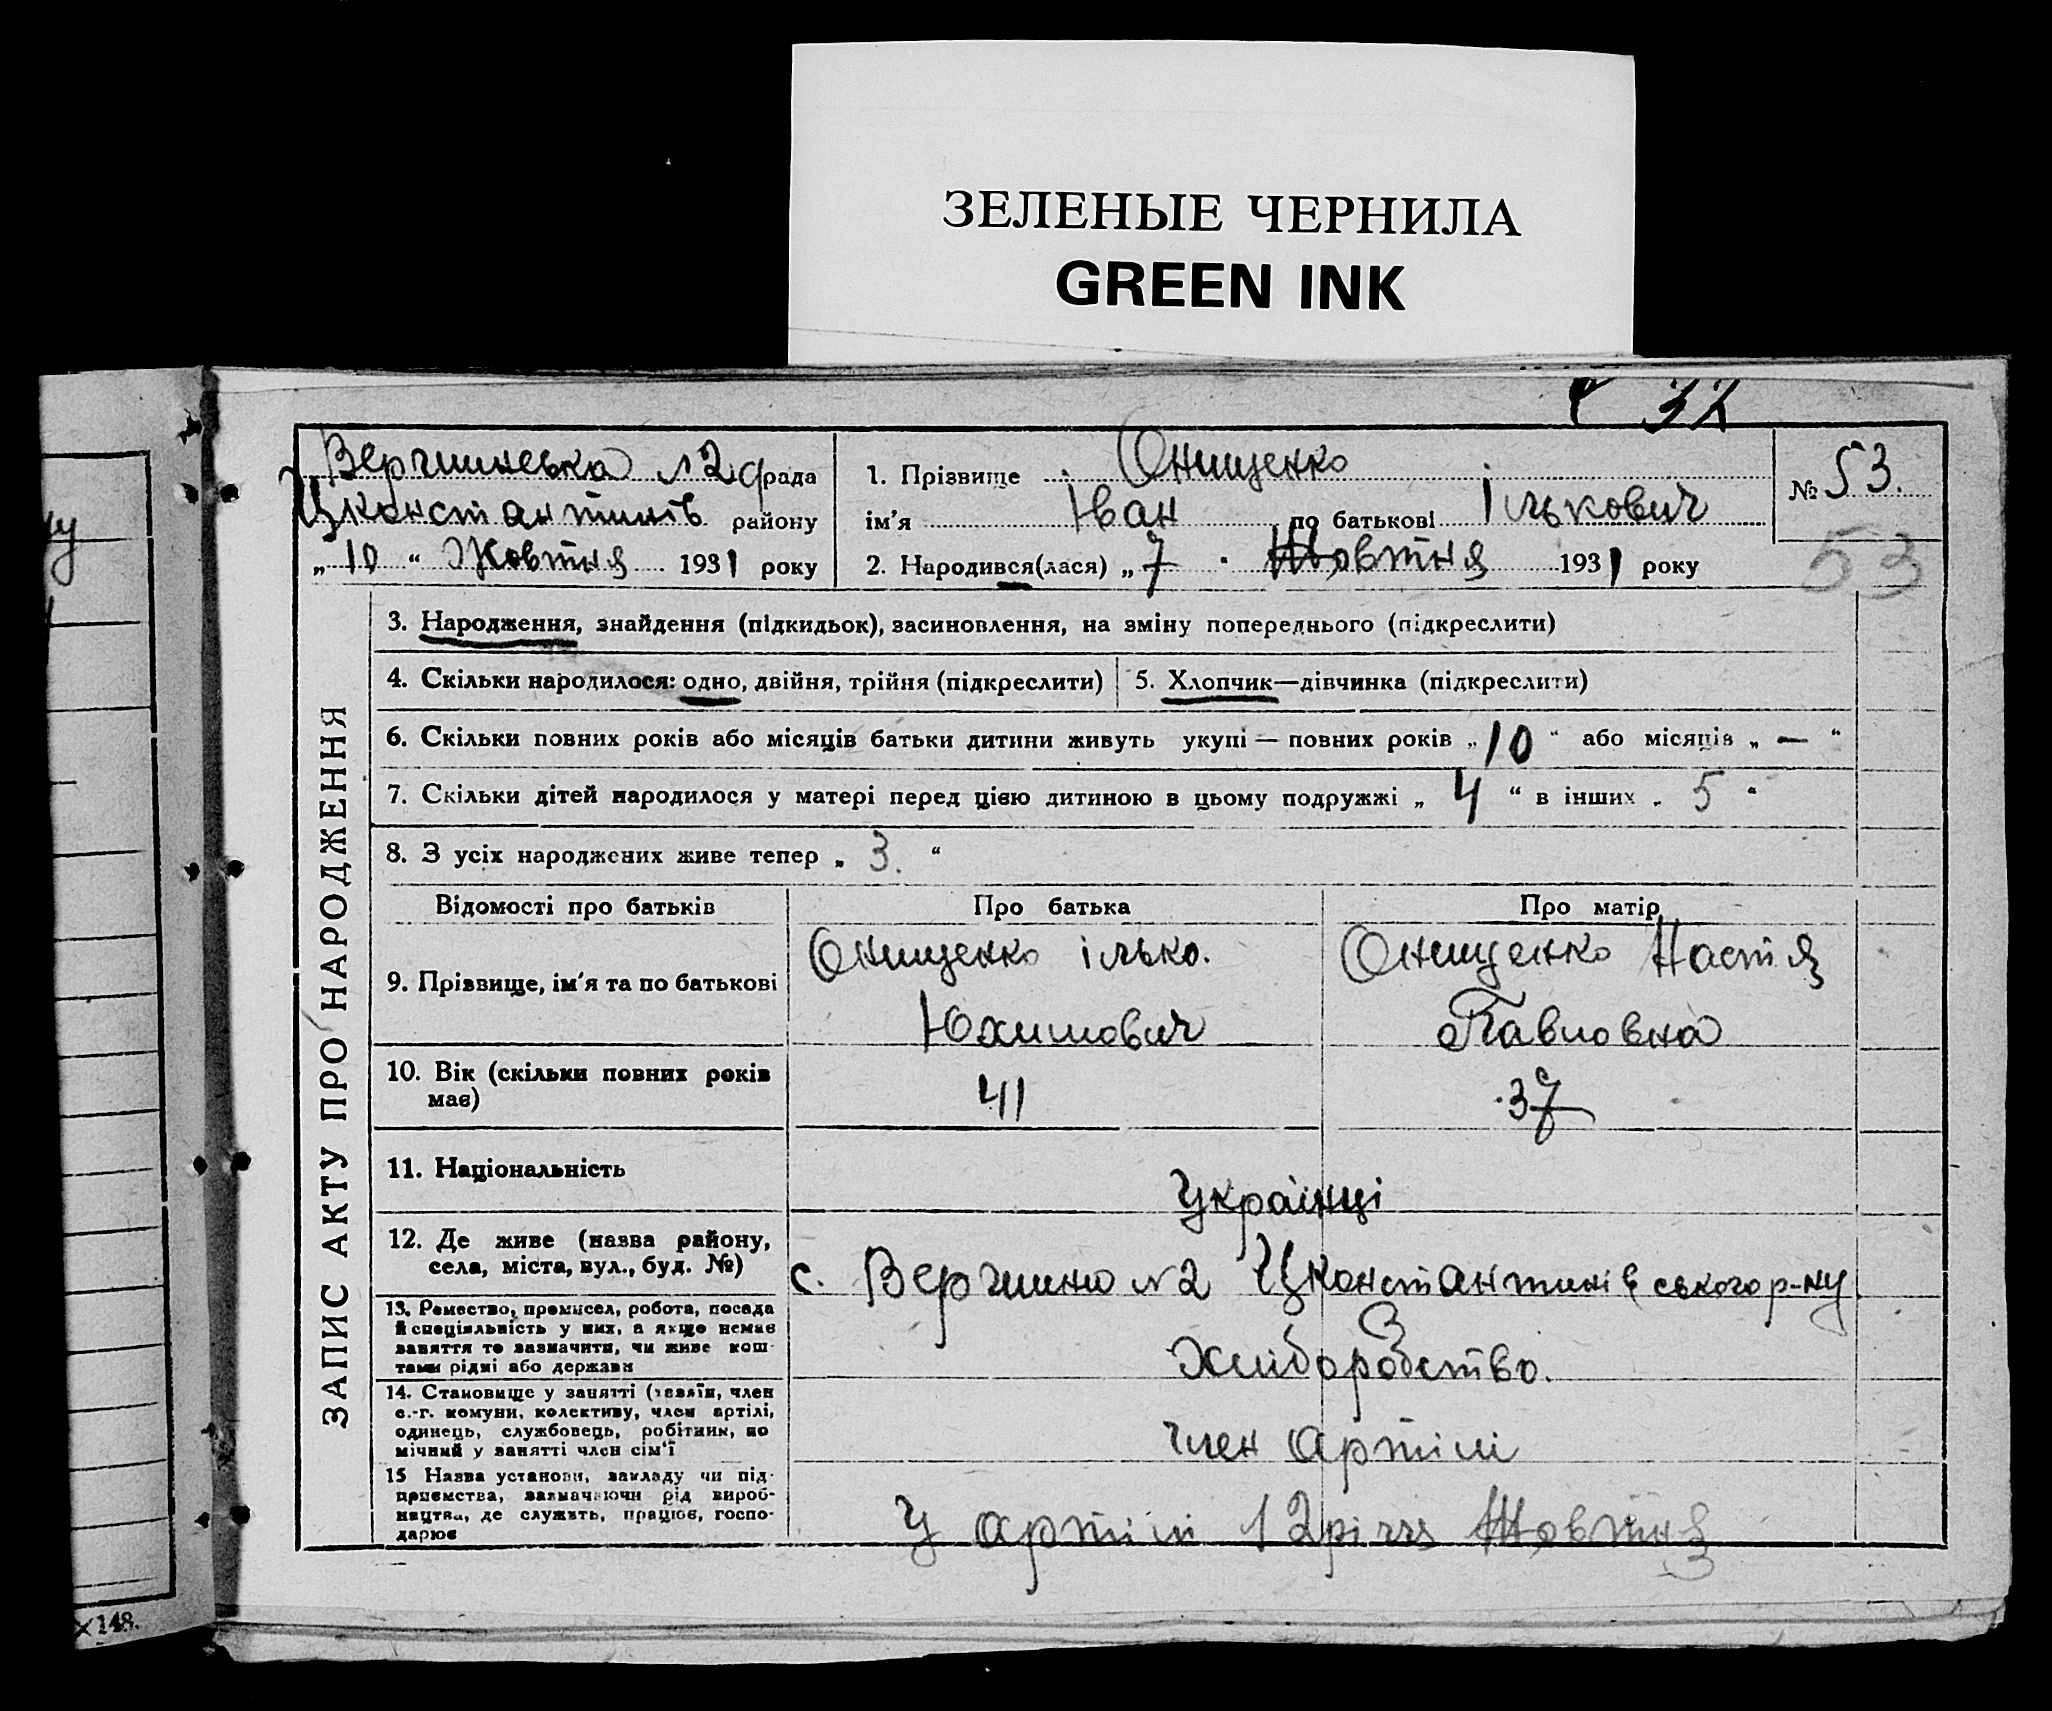 ЗЕЛЕНЫЕ ЧЕРНИЛА
GREEN INK
32
Вергшинська №2 с/рада
Цконстантинів району
„ 10 “ Жовтня 1931 року
1. Прізвище Онищенко
ім'я Іван по батькові Ількович
2. Народився(лася) „ 7 “ Жовтня 1931 року
№ 53.
53
ЗАПИС АКТУ ПРО НАРОДЖЕННЯ
3. Народження, знайдення (підкидьок), засиновлення, на зміну попереднього (підкреслити)
4. Скільки народилося: одно, двійня, трійня (підкреслити)
5. Хлопчик—дівчинка (підкреслити)
6. Скільки повних років або місяців батьки дитини живуть укупі — повних років „ 10 “ або місяців „ — “
7. Скільки дітей народилося у матері перед цією дитиною в цьому подружжі „ 4 “ в інших „ 5 “
8. З усіх народжених живе тепер „ 3. “
Відомості про батьків
Про батька
Про матір
9. Прізвище, ім'я та по батькові
Онищенко ілько.
Юхимович
Онищенко Настя
Павловна
10. Вік (скільки повних років
має)
41
37
11. Національність
Українці
12. Де живе (назва району,
села, міста, вул., буд. №)
с. Вергшино №2 Цконстантинівського р-ну
13. Ремество, промисел, робота, посада
й спеціяльність у них, а якщо немає
заняття то зазначити, чи живе кош-
тами рідні або держави
Хліборобство.
14. Становище у занятті (хазяїн, член
с.-г. комуни, колективу, член артілі,
одинець, службовець, робітник, по
мічний у занятті член сім'ї
Член артілі
15 Назва установи, закладу чи під-
приємства, зазначаючи рід вироб-
ництва, де служить, працює, госпо-
дарює
У артілі 12 річчя Жовтня
148.